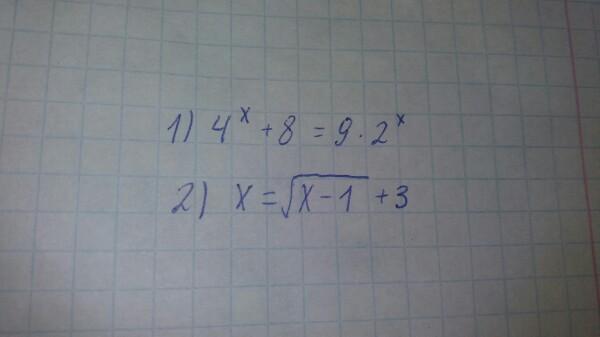 1) 4ˣ + 8 = 9 · 2ˣ
2) x = √(x - 1) + 3